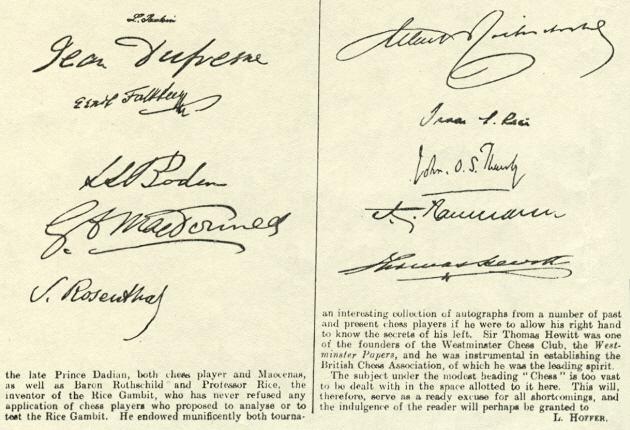 Jean Dufresne
S S Boden
G. A MacDonnell
S. Rosenthal
the late Prince Dadian, both chess player and Maecenas,
as well as Baron Rothschild and Professor Rice, the
inventor of the Rice Gambit, who has never refused any
application of chess players who proposed to analyse or to
test the Rice Gambit. He endowed munificently both tourna-
Albert
Isaac L. Rice
John. O. S. Thursby
Thomas Hewitt
an interesting collection of autographs from a number of past
and present chess players if he were to allow his right hand
to know the secrets of his left. Sir Thomas Hewitt was one
of the founders of the Westminster Chess Club, the West-
minster Papers, and he was instrumental in establishing the
British Chess Association, of which he was the leading spirit.
The subject under the modest heading "Chess" is too vast
to be dealt with in the space allotted to it here. This will,
therefore, serve as a ready excuse for all shortcomings, and
the indulgence of the reader will perhaps be granted to
L. HOFFER.